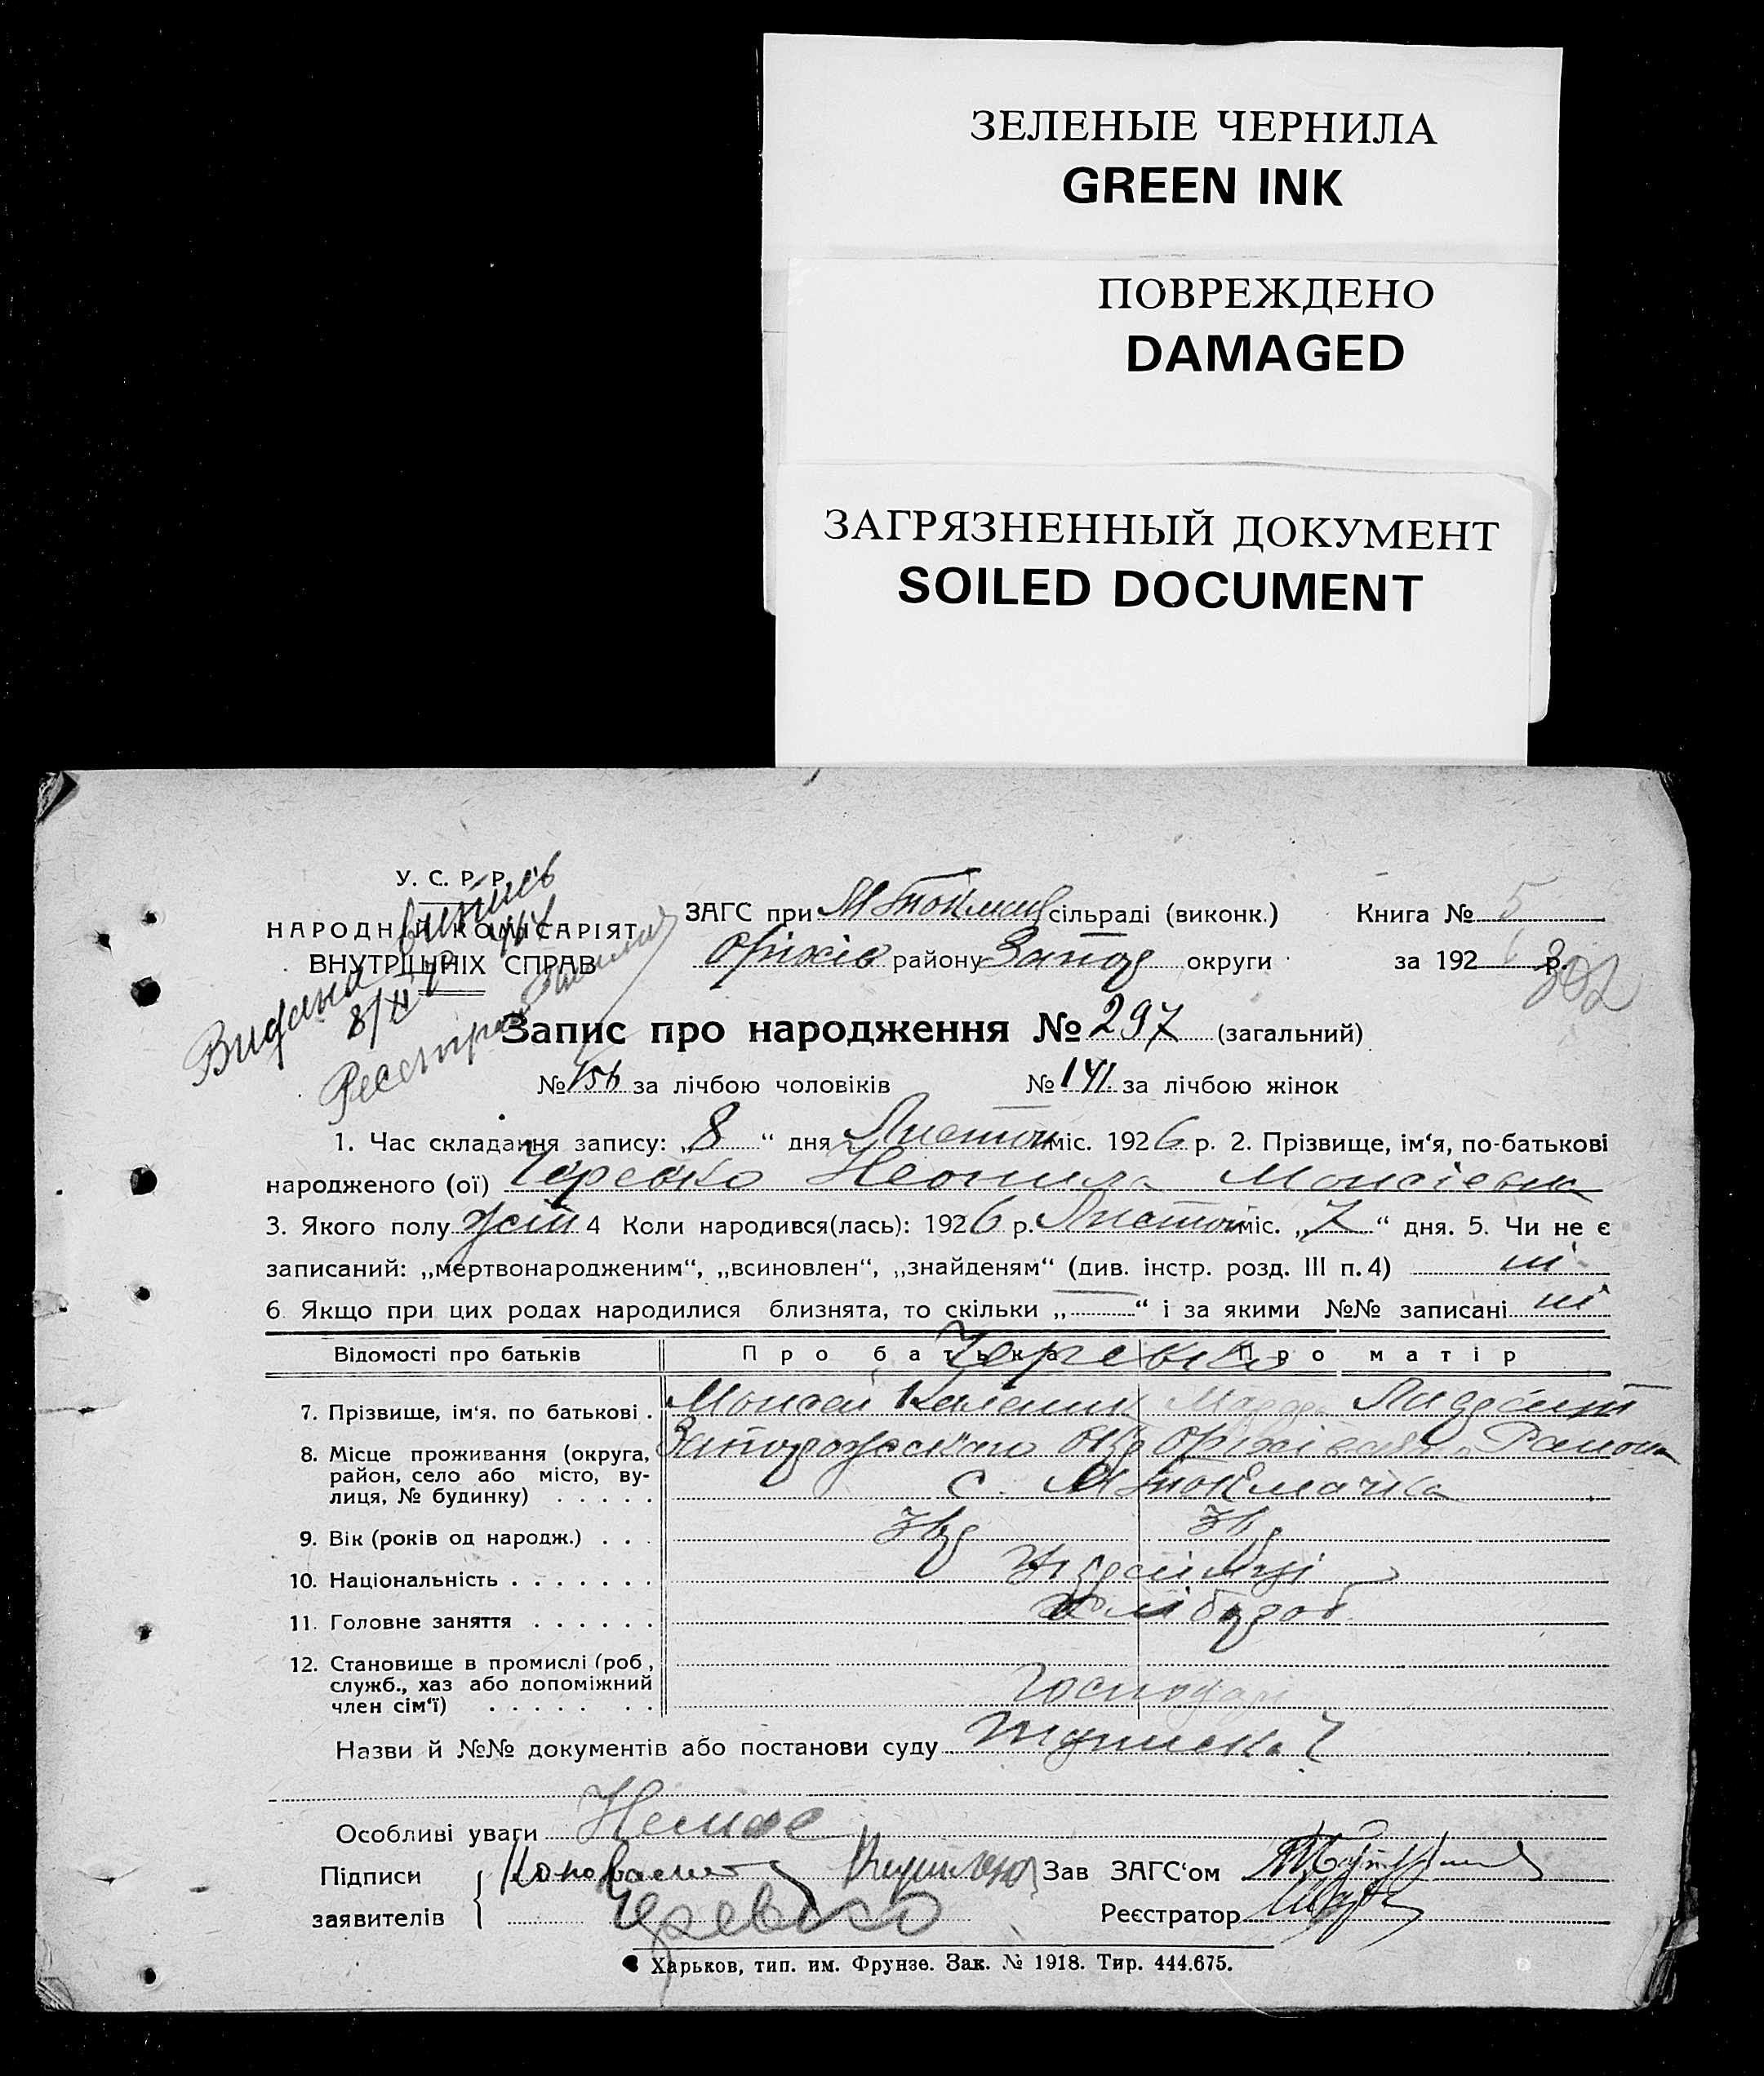 ЗЕЛЕНЫЕ ЧЕРНИЛА
GREEN INK
ПОВРЕЖДЕНО
DAMAGED
ЗАГРЯЗНЕННЫЙ ДОКУМЕНТ
SOILED DOCUMENT
У. С. Р. Р.
НАРОДНІЙ КОМІСАРІЯТ
ВНУТРІШНІХ СПРАВ
Видана
8/XI
ЗАГС при М Токмац сільраді (виконк.)
Книга № 5
Оріхів району Запор округи
за 1926 р.
302
Запис про народження № 297 (загальний)
№ 156 за лічбою чоловіків № 141 за лічбою жінок
1. Час складання запису: „8“ дня Листоп міс. 1926 р. 2. Прізвище, ім‘я, по-батькові
народженого (ої) Черевко Неонила Мойсієвна
3. Якого полу жін 4 Коли народився(лась): 1926 р. Листоп міс. „7“ дня. 5. Чи не є
записаний: „мертвонародженим“, „всиновлен“, „знайденям“ (див. інстр. розд. III п. 4) ні
6 Якщо при цих родах народилися близнята, то скільки „—“ і за якими №№ записані ні
Відомості про батьків Про батька Про матір
Черевко
7. Прізвище, ім‘я. по батькові . Мойсей Каленик
8. Місце проживання (округа, Запорожскаго Окр Оріхівскаго Района
район, село або місто, ву-
лиця, № будинку) . . . . . с. М Токмачка
9. Вік (років од народж.) . . .
10. Національність . . . . . . . Українці
11. Головне заняття . . . . . . Хлібороб
12. Становище в промислі (роб.,
служб., хаз або допоміжний
член сім‘ї) . . . . . . . Господарі
Назви й №№ документів або постанови суду
Особливі уваги Немає
Підписи
заявителів Черевко
Зав ЗАГС‘ом
Реєстратор
Харьков, тип. им. Фрунзе. Зак. № 1918. Тир. 444.675.